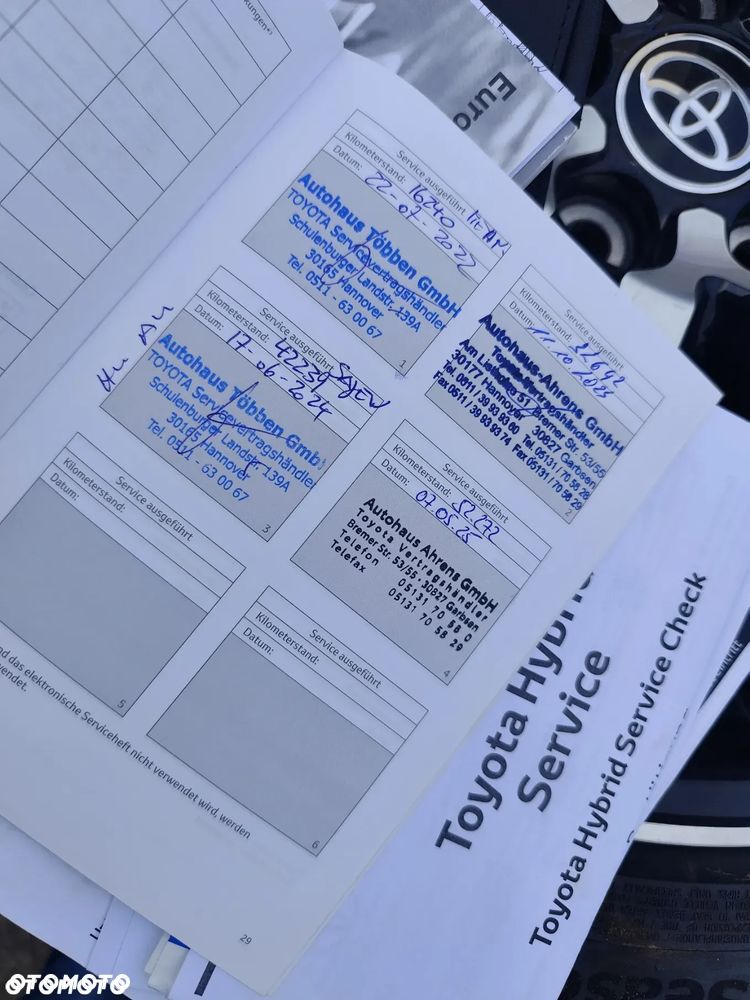 kungen*)
Euro
Service ausgeführt
Kilometerstand: 16240
Datum: 22-07-2022
Autohaus Többen GmbH
TOYOTA Servicevertragshändler
Schulenburger Landstr. 139A
30165 Hannover
Tel. 0511 - 63 00 67
1
Service ausgeführt
Kilometerstand:
Datum: 11.10.2023
Autohaus Ahrens GmbH
Toyota-Vertragshändler
Am Bremer Str. 53/55
30177 Hannover 30827 Garbsen
Tel. 0511 / 39 93 93 60 Tel. 05131 / 70 58 28
Fax 0511 / 39 93 93 74 Fax 05131 / 70 58 29
2
Service ausgeführt
Kilometerstand: 42239
Datum: 17-06-2024
Autohaus Többen GmbH
TOYOTA Servicevertragshändler
Schulenburger Landstr. 139A
30165 Hannover
Tel. 0511 - 63 00 67
3
Service ausgeführt
Kilometerstand: 52.272
Datum: 07.05.25
Autohaus Ahrens GmbH
Toyota Vertragshändler
Bremer Str. 53/55 . 30827 Garbsen
Telefon 05131 70 58 0
Telefax 05131 70 58 29
4
Service ausgeführt
Kilometerstand:
Datum:
5
Service ausgeführt
Kilometerstand:
Datum:
6
das elektronische Serviceheft nicht verwendet wird, werden
wendet.
29
Toyota Hybrid
Service
Toyota Hybrid Service Check
OTOMOTO